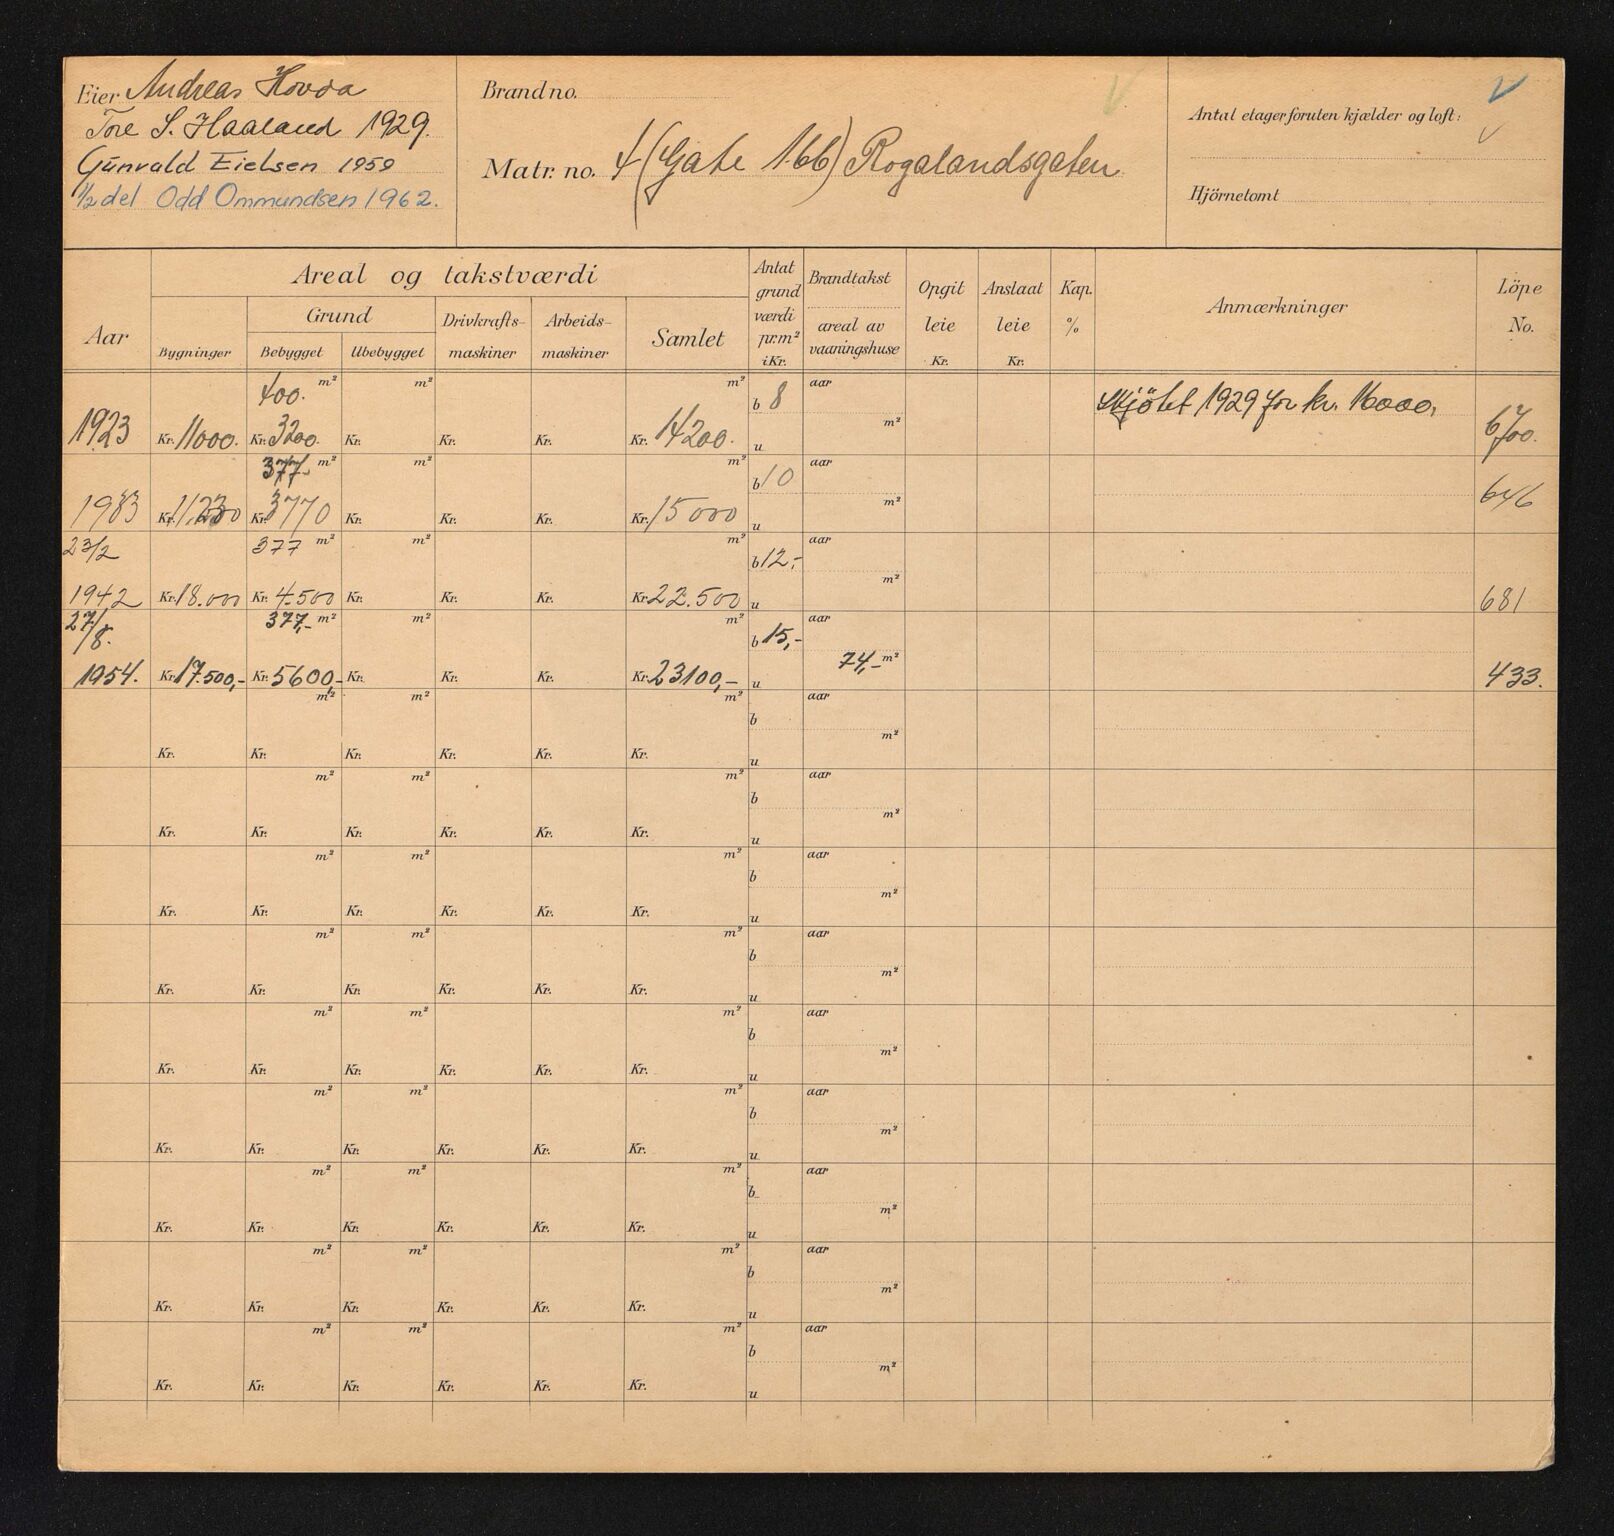 Eier Andreas Hovda
Tore S. Haaland 1929.
Gunvald Eielsen 1959
1/2 del Odd Ommundsen 1962.
Brand no.
Matr. no. 4 (Gate 166) Rogalandsgaten
Antal etager foruten kjælder og loft:
Hjörnetomt
Aar
Areal og takstværdi
Bygninger
Grund
Bebygget Ubebygget
Drivkrafts-
maskiner
Arbeids-
maskiner
Samlet
Antat
grund
værdi
pr. m²
i Kr.
Brandtakst
areal av
vaaningshuse
Opgit
leie
Kr.
Anslaat
leie
Kr.
Kap.
%
Anmærkninger
Löpe
No.
400. m² m² m² b 8 aar Skjötet 1929 for kr. 16000,
1923 Kr. 11000. Kr. 3200. Kr. Kr. Kr. Kr. 14200. u m² 6700.
377,- m² m² m² b 10 aar
1933 Kr. 11.230 Kr. 3770 Kr. Kr. Kr. Kr. 15000 u m² 646
23/2 377 m² m² m² b 12,- aar
1942 Kr. 18.000 Kr. 4.500 Kr. Kr. Kr. Kr. 22.500 u m² 681
27/8. 377,- m² m² m² b 15,- aar
1954. Kr. 17.500,- Kr. 5600,- Kr. Kr. Kr. Kr. 23100,- u 74,- m² 433.
m² m² m² b aar
Kr. Kr. Kr. Kr. Kr. Kr. u m²
m² m² m² b aar
Kr. Kr. Kr. Kr. Kr. Kr. u m²
m² m² m² b aar
Kr. Kr. Kr. Kr. Kr. Kr. u m²
m² m² m² b aar
Kr. Kr. Kr. Kr. Kr. Kr. u m²
m² m² m² b aar
Kr. Kr. Kr. Kr. Kr. Kr. u m²
m² m² m² b aar
Kr. Kr. Kr. Kr. Kr. Kr. u m²
m² m² m² b aar
Kr. Kr. Kr. Kr. Kr. Kr. u m²
m² m² m² b aar
Kr. Kr. Kr. Kr. Kr. Kr. u m²
m² m² m² b aar
Kr. Kr. Kr. Kr. Kr. Kr. u m²